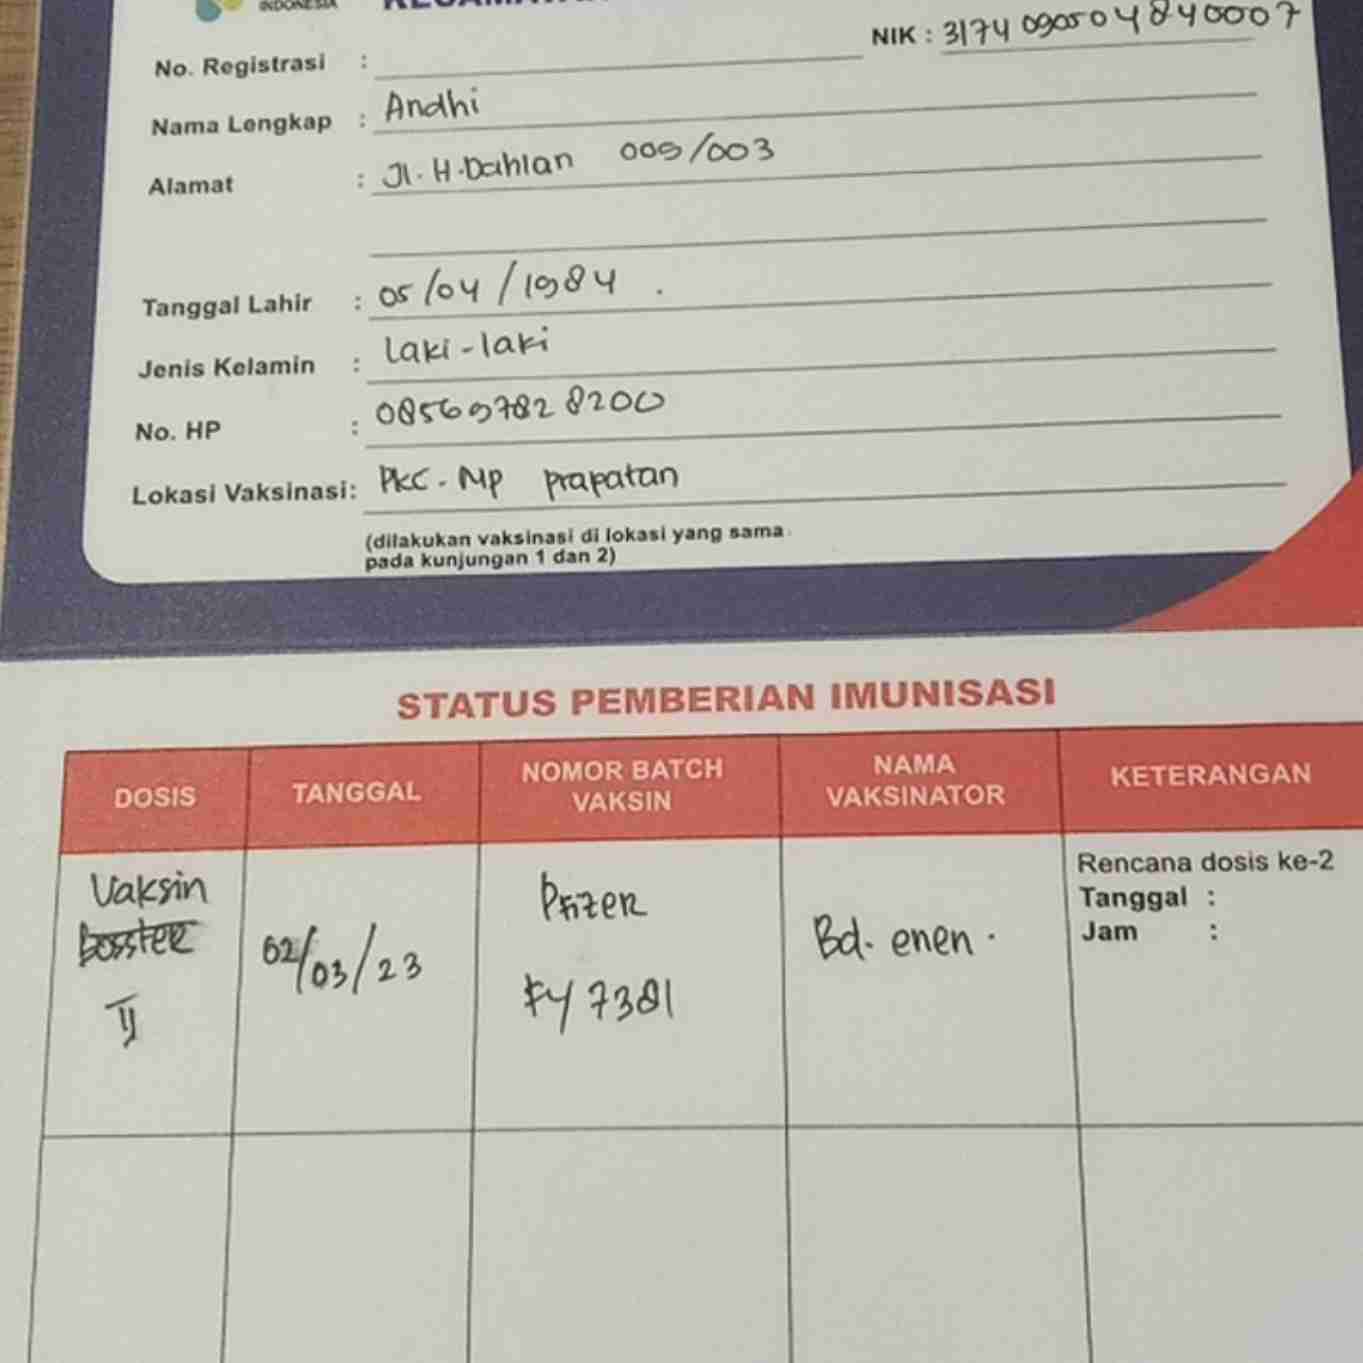 INDONESIA
NIK : 3174090504840007
No. Registrasi :
Nama Lengkap : Andhi
Alamat : Jl. H. Dahlan 009/003
Tanggal Lahir : 05/04/1984 .
Jenis Kelamin : Laki-laki
No. HP : 085697828200
Lokasi Vaksinasi: PKC. Mp prapatan
(dilakukan vaksinasi di lokasi yang sama
pada kunjungan 1 dan 2)
STATUS PEMBERIAN IMUNISASI
DOSIS TANGGAL NOMOR BATCH VAKSIN NAMA VAKSINATOR KETERANGAN
Vaksin
II
02/03/23
Pfizer
FY 7381
Bd. enen .
Rencana dosis ke-2
Tanggal :
Jam :